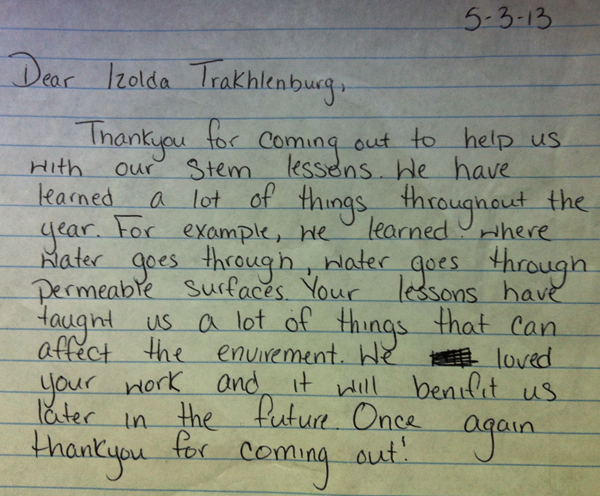 5-3-13
Dear Izolda Trakhlenburg,
Thankyou for coming out to help us
with our Stem lessons. We have
learned a lot of things throughout the
year. For example, we learned where
water goes through, water goes through
permeable surfaces. Your lessons have
taught us a lot of things that can
affect the envirement. We loved
your work and it will benifit us
later in the future. Once again
thankyou for coming out!